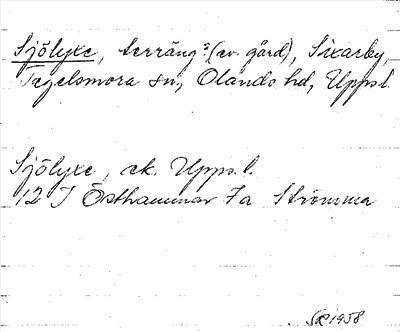 Sjölyxe, terräng? (ev. gård), Sixarby,
Tegelsmora sn, Olands hd, Uppsl.
Sjölyxe, ek. Upps. l.
12 I Östhammar 7a Strömma
SR 1958